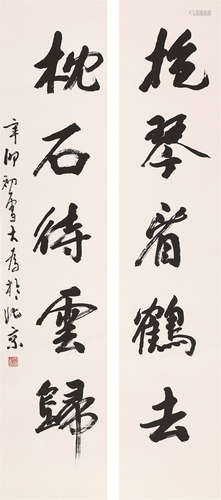 抱琴看鶴去
枕石待雲歸
辛卯初雪大為於北京